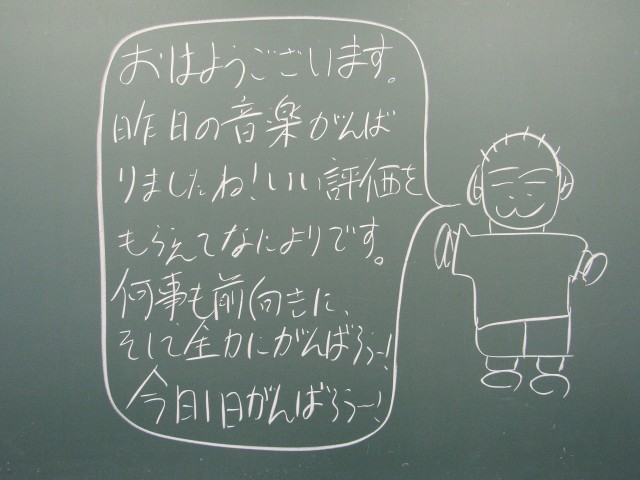 おはようございます。
昨日の音楽がんば
りましたね!いい評価を
もらえてなによりです。
何事も前向きに、
そして全力にがんばろぅー!
今日1日がんばろぅー!